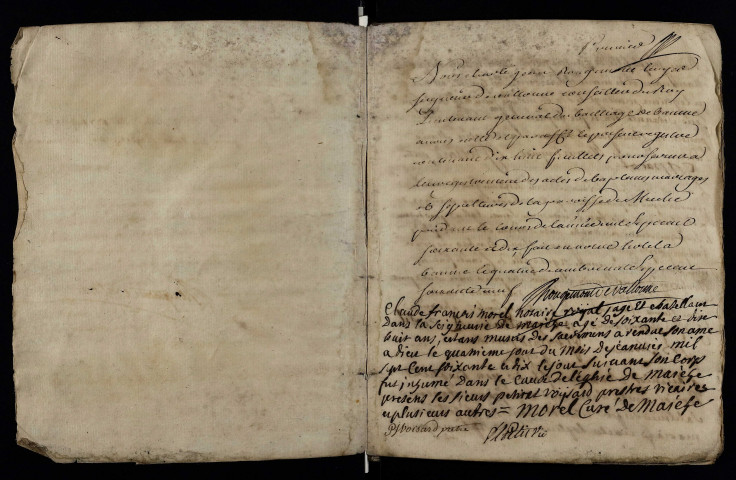 premier
Nous
Seigneur de vallonne conseiller du Roy
Lieutenant general du bailliage de Baume
avons cotté et paraffé le present registre
contenant dix huit feuillets pour servir a
des actes de baptemes mariages
et sepultures de la paroisse de Maiche
pendant le cours de l'année mil sept cent
soixante et dix fait en notre hotel a
baume le quatre decembre mil sept cent
soixante neuf Rougemont de vallonne
Claude francois morel notaire royal juge et chatellain
Dans la Seigneurie de maiche agé de soixante et dix
huit ans, etans munis des sacremens a rendue son ame
a dieu le quatrieme jour du mois de janvier mil
sept cent soixante et dix le jour suivant son corps
fut inhumé dans le caveau de l'eglise de maiche
presens les sieurs petitot voisard prestres vicaires
et plusieurs autres = morel Curé de Maiche
PJ Voisard pretre petitot